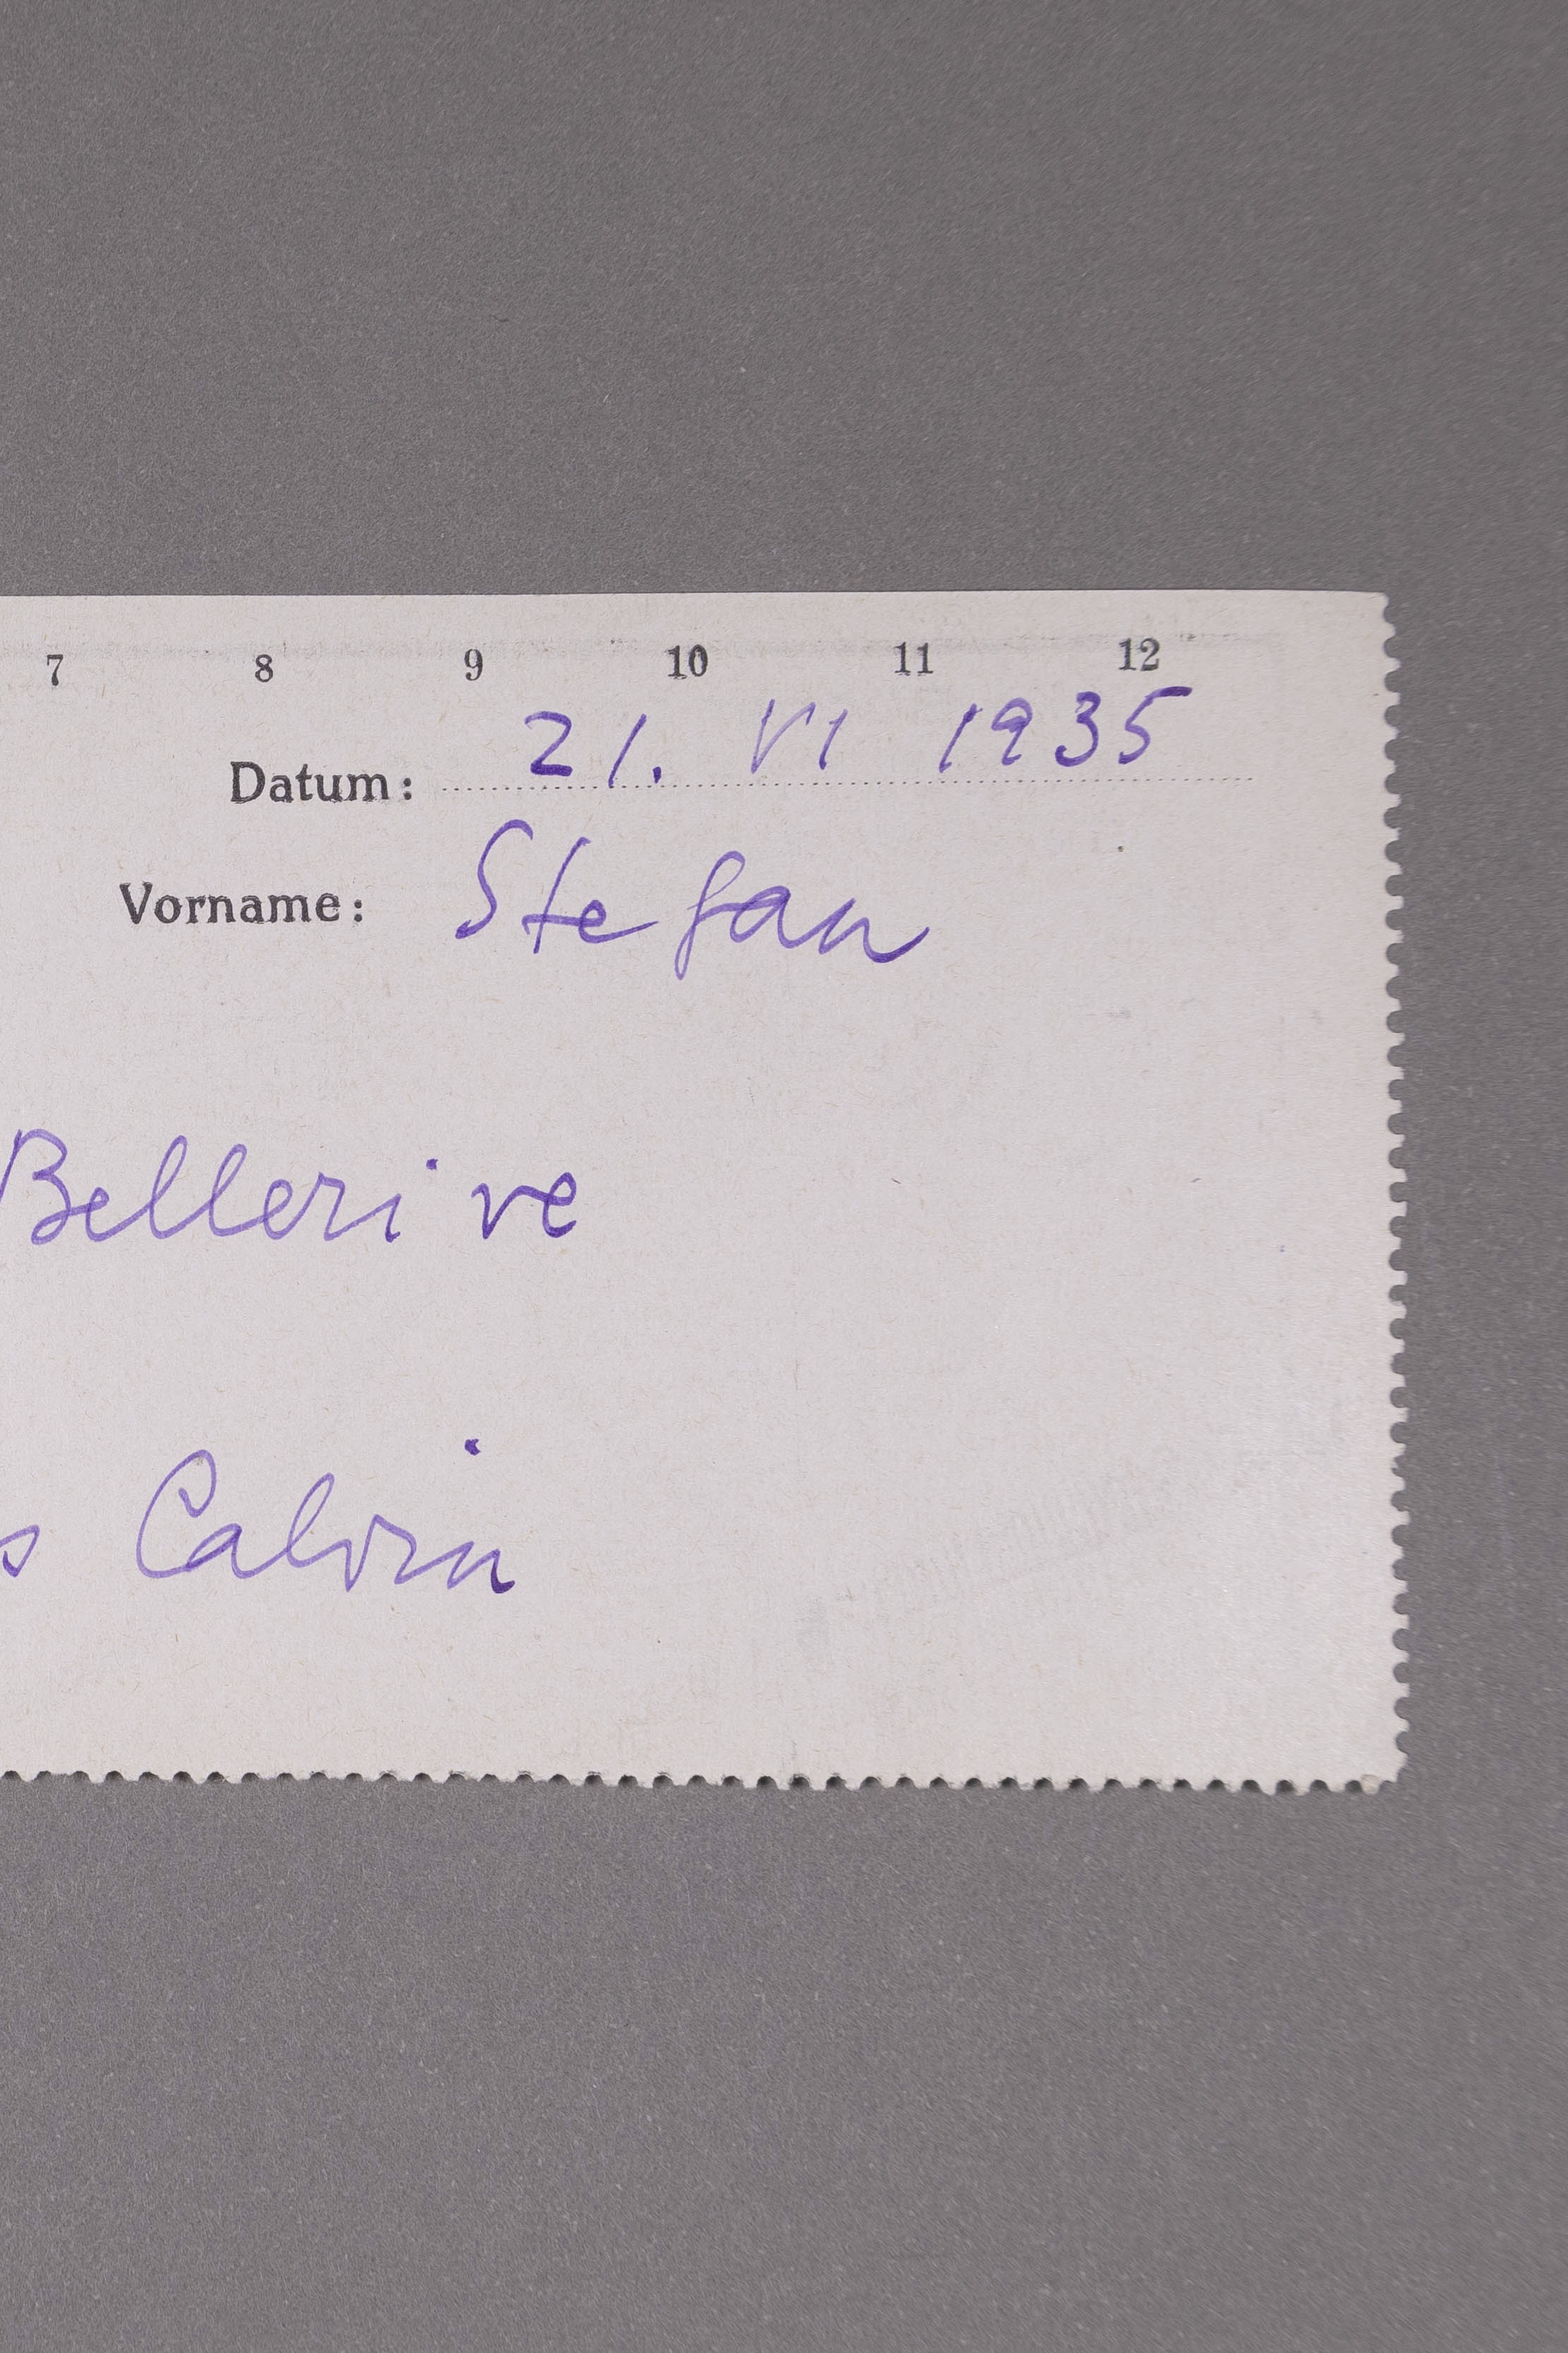 7 8 9 10 11 12
Datum: 21. VI 1935
Vorname: Stefan
Bellerive
s Calvin